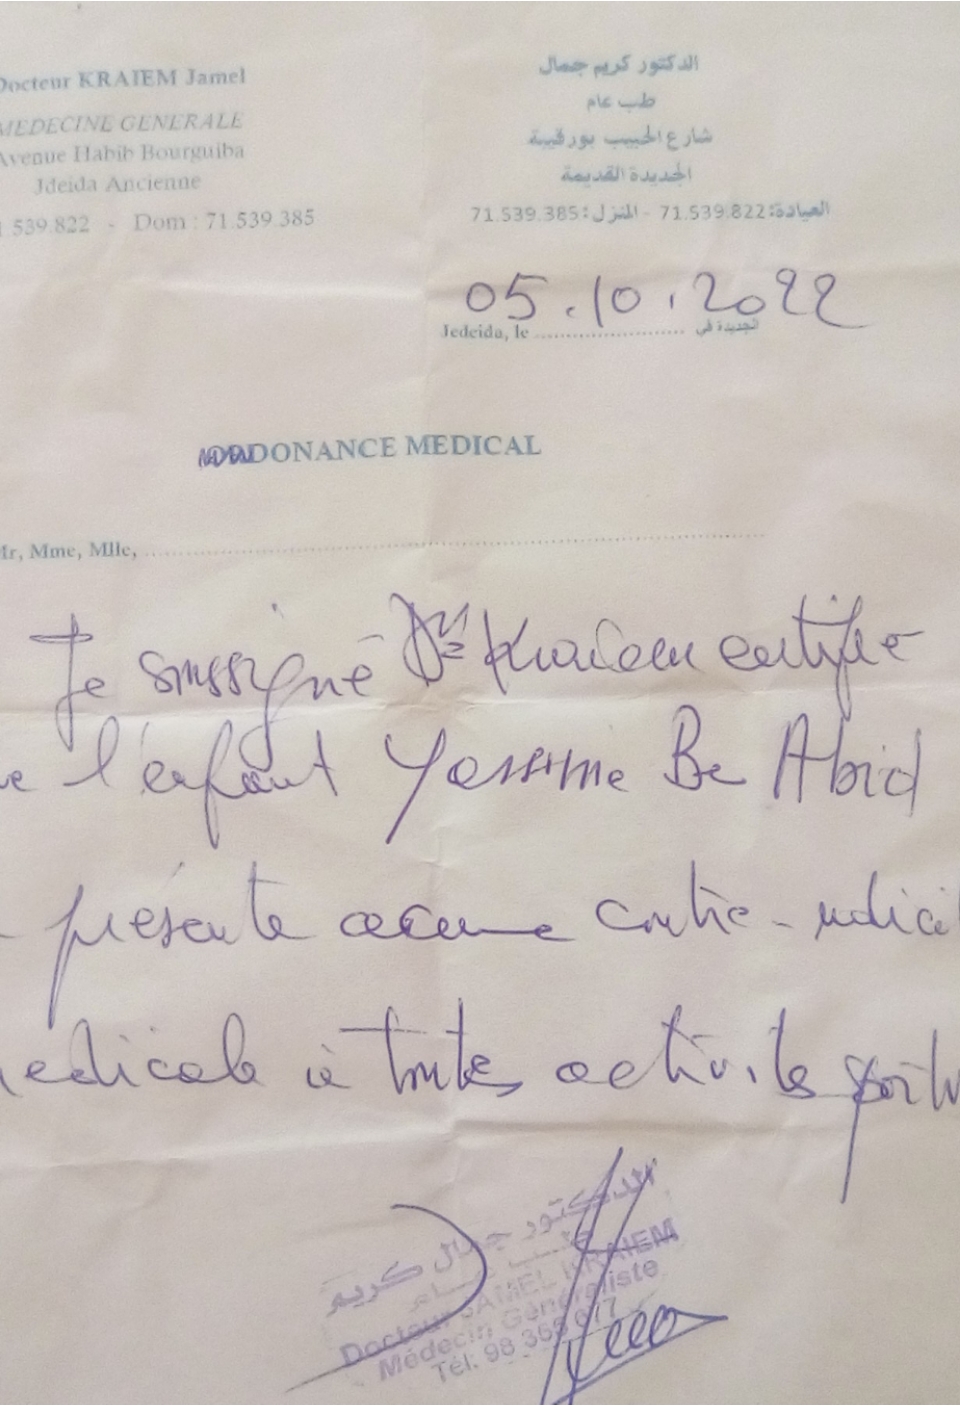 Docteur KRAIEM Jamel
MEDECINE GENERALE
Avenue Habib Bourguiba
Jdeida Ancienne
539.822 - Dom : 71.539.385
الدكتور كريم جمال
طب عام
شارع الحبيب بورقيبة
الجديدة القديمة
العيادة: 71.539.822 - المنزل: 71.539.385
05.10.2022
Jedeida, le ........................ الجديدة في
DONANCE MEDICAL
Mr, Mme, Mlle, ........................
Je soussigné Dr Kraiem certifie
l'enfant Yassmine Be Abid
présente aucune contre-indicat
médicale à toutes activités sportiv
الدكتور جمال كريم
طب عام
Docteur JAMEL KRAIEM
Médecin Généraliste
Tél: 98 365 677